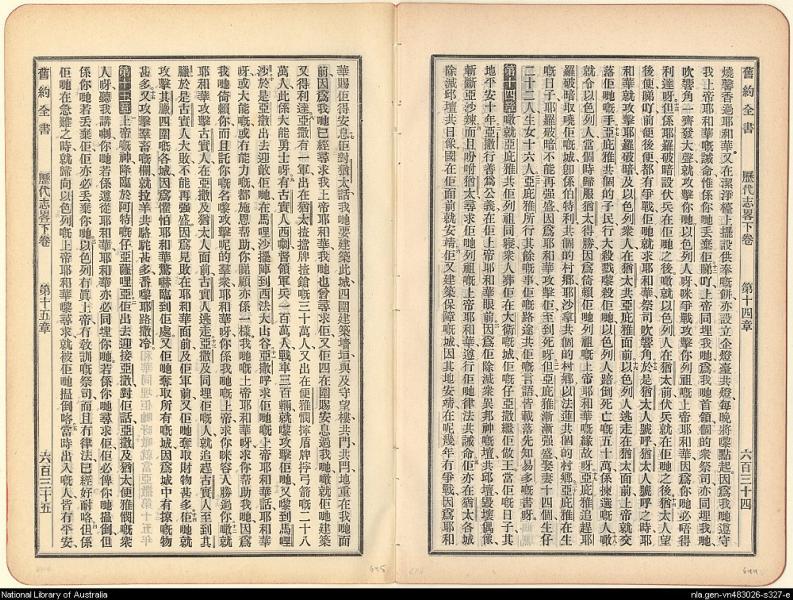 舊約全書 歷代志畧下卷 第十四章 六百三十四
燒馨香過耶和華又在潔淨檯上擺設供奉嘅餅亦設立金燈臺共燈每晚將嚟點起因爲我哋遵守
我上帝耶和華嘅誡命惟係你哋丟棄佢睇吓上帝同埋我哋爲我哋首領個的衆祭司亦同埋我哋
吹響角一齊發大聲就攻擊你哋以色列人呀咪爭戰攻擊你列祖嘅上帝耶和華因爲你哋必唔得
利達呀但係耶羅破暗設伏兵在佢哋之後噉就以色列人在猶太前伏兵就在佢哋之後猶太人望
後便睇吓前便後便都有爭戰佢哋就求耶和華祭司吹響角於是猶太人號呼猶太人號呼之時耶
和華就攻擊耶羅破暗及以色列衆人在猶太共亞庇雅面前以色列人逃走在猶太面前上帝就交
落佢哋嘅手亞庇雅共佢嘅子民行大殺戮嚟殺佢哋以色列人踣倒死亡嘅五十萬係揀選嘅人噉
就令以色列人當個時歸服猶太得勝因爲倚賴佢哋列祖嘅上帝耶和華嘅緣故呀亞庇雅追趕耶
羅破暗取曉佢嘅城卽係伯特利共個的村鄉耶沙拿共個的村鄉以法蓮共個的村鄉亞庇雅在生
嘅日子耶羅破暗不能再強盛因爲耶和華攻擊佢至到死呀但亞庇雅漸漸强盛娶妻十四個生仔
二十二人生女十六人亞庇雅所行其餘嘅事佢嘅路途共佢嘅言語皆載落先知易多嘅書呀
第十四章噉就亞庇雅共佢列祖同寢衆人葬佢在大衞嘅城佢嘅仔亞撒繼佢做王當佢嘅日子其
地平安十年亞撒行善爲公義在佢上帝耶和華眼前因爲佢除滅衆異邦神嘅壇共邱壇毀壞偶像
斬斷亞沙錬而且吩咐猶太尋求佢哋列祖嘅上帝耶和華遵行佢哋律法共誡命佢亦在猶太各城
除滅邱壇共日像國在佢面前就安靖佢又建築保障嘅城因其地安靖在呢幾年有爭戰因爲耶和
華賜佢得安息佢對猶太話我哋要建築此城四圍建築墻垣與及守望樓共門共閂地重在我哋面
前因爲我哋已經尋求我上帝耶和華我哋也曾尋求佢又佢四在圍賜安息過我哋噉就佢哋建築
又得利達亞撒有一軍出在猶太揸擋牌揸鎗嘅三十萬人又出在便雅憫揸盾牌拧弓箭嘅二十八
萬人此係大能嘅勇士呀有古實人西剌督領軍兵一百萬人戰車三百輛就嚟攻擊佢哋又嚟到馬哩
沙於是亞撒出去迎敵佢哋在馬哩沙擺陣到西法大山谷亞撒呼求佢嘅上帝耶和華話耶和華
呀或大能嘅或有能力嘅都施恩帮助你睇顧亦係一樣我哋嘅上帝耶和華呀求你帮助我哋因爲
我哋倚賴你而且託你嘅名嚟攻擊呢的羣衆耶和華呀你係我哋嘅上帝求你咪容人勝過你噉就
耶和華攻擊古實人在亞撒及猶太人面前古實人逃走亞撒及同埋佢嘅人就追趕古實人至到其
臘於是古實人大敗不能再強盛因爲見敗在耶和華面前及佢軍前又佢哋奪取財物甚多佢哋就
攻擊其臘四圍嘅各城因爲懼怕耶和華驚嚇臨到佢處又佢哋奪取所有嘅城因爲城中有掠嘅物
甚多又攻擊羣畜嘅欄就拉羊共駱駝甚多番嚟耶路撒冷
第十五章上帝嘅神降臨於阿特嘅仔亞薩哩亞佢出去迎接亞撒對佢話亞撒及猶太便雅憫嘅衆
人呀聽我講喇你哋若係遵從耶和華耶和華亦必同埋你哋若係你哋尋求佢佢必俾你哋搵倒但
係你哋若丟棄佢佢亦必丟棄你哋以色列冇眞上帝冇敎訓嘅祭司而且冇律法已經好耐咯但係
佢哋在急難之時就歸向以色列嘅上帝耶和華嚟尋求就被佢哋搵倒咯當時出入嘅人皆冇平安
舊約全書 歷代志畧下卷 第十五章 六百三十五
National Library of Australia
nla.gen-vn483026-s327-e